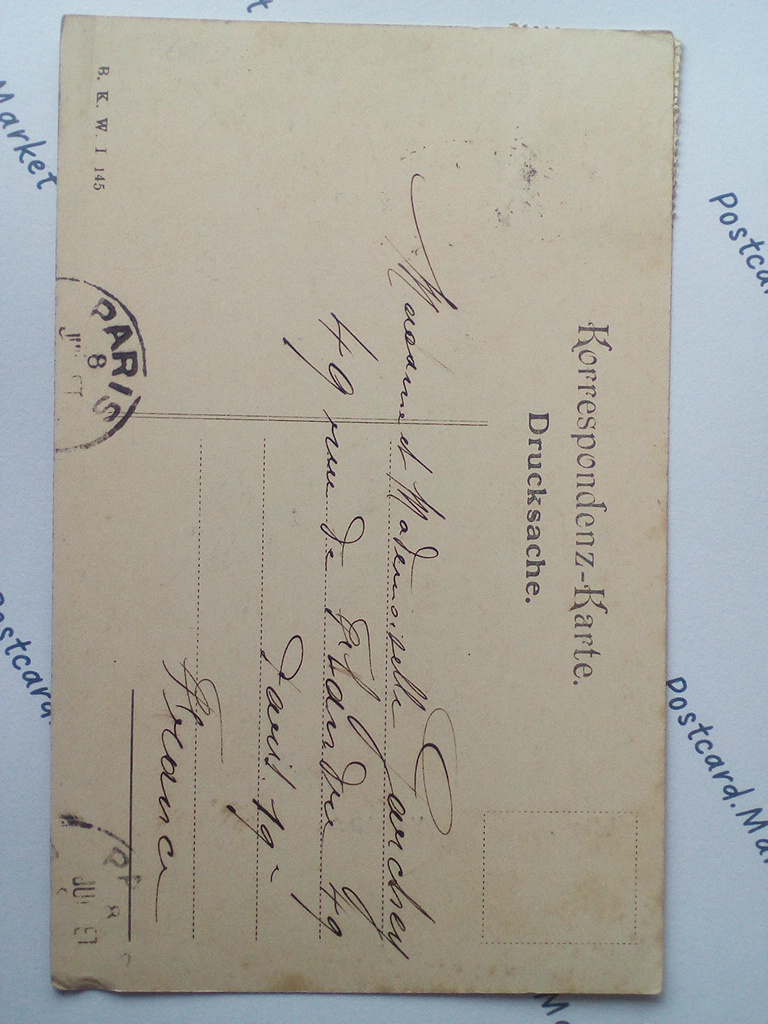 Korrespondenz-Karte.
Drucksache.
Madame et Mademoiselle Garchey
49 rue de Flandre 49
Paris 19e
France
B. K. W. I 145
PARIS
8
Market
postcar
postcard
postcard.Mar
M